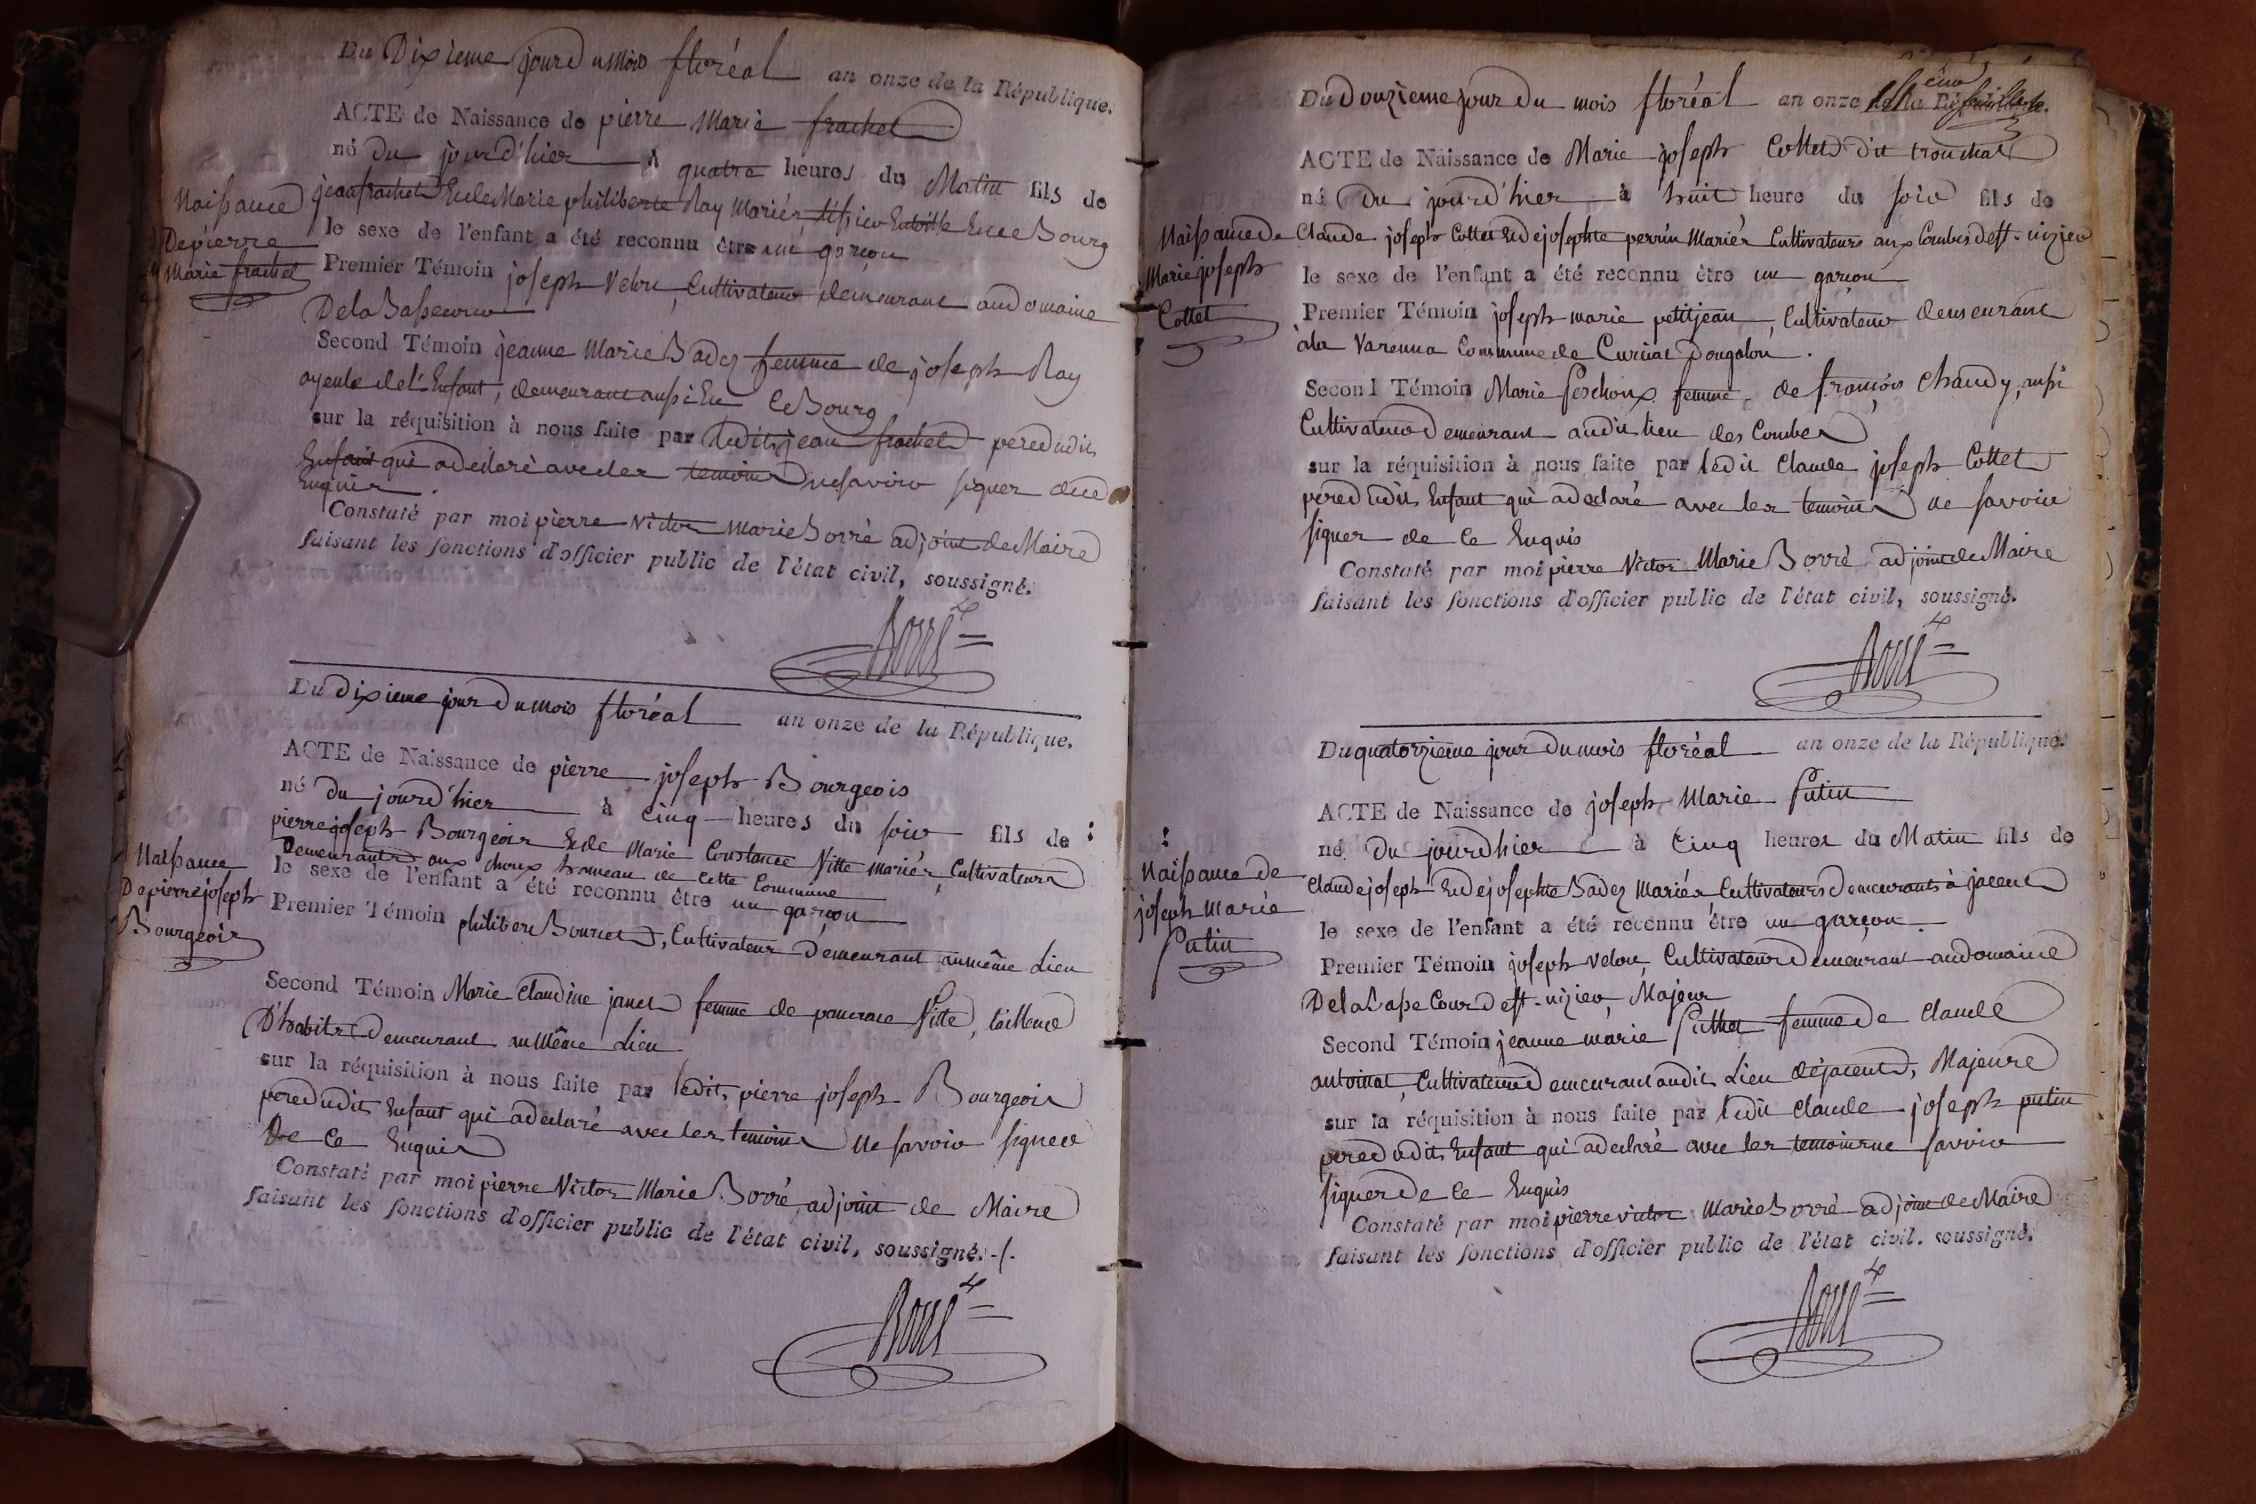 Du Dixieme jour du mois floréal an onze de la République.
ACTE de Naissance de pierre Marie frachet
né du jourd'hier à quatre heures du Matin fils de
jean frachet Et de Marie philiberte Ray Mariés, En ce Bourg
le sexe de l'enfant a été reconnu être un garçon
Premier Témoin joseph Velon, Cultivateur demeurant au domaine
De la
Second Témoin jeanne Marie Badez femme de joseph Ray
ayeule de l'Enfant, demeurant aussi En ce Bourg
sur la réquisition à nous faite par ledit jean frachet pere dudit
Enfant qui a declaré avec les temoins ne savoir signer de ce
Enquis.
Constaté par moi pierre Victor Marie Borré adjoint de Maire
faisant les fonctions d'officier public de l'état civil, soussigné.
Borré
Naissance
De pierre
Marie frachet
Du dixieme jour du mois floréal an onze de la République.
ACTE de Naissance de pierre joseph Bourgeois
né du jourd'hier à Cinq heures du soir fils de :
pierre joseph Bourgeois Et de Marie Constance Nitte Mariés, Cultivateurs
Demeurants aux choux hameau de cette Commune
le sexe de l'enfant a été reconnu être un garçon
Premier Témoin philibert Bourcet, Cultivateur demeurant au même Lieu
Second Témoin Marie Claudine janet femme de pancrace Nitte, tailleur
D'habits Demeurant au Même Lieu
sur la réquisition à nous faite par ledit pierre joseph Bourgeois
pere dudit Enfant qui a declaré avec les temoins ne savoir signer
De Ce Enquis
Constaté par moi pierre Victor Marie Borré adjoint de Maire
faisant les fonctions d'officier public de l'état civil, soussigné.
Borré
Naissance
De pierre joseph
Bourgeois
Du Douzieme jour du mois floréal an onze de la République.
ACTE de Naissance de Marie joseph Cottet dit
né du jourd'hier à huit heure du soir fils de
Claude joseph Cottet Et de josephte perrin Mariés Cultivateurs aux Combes de st. vizier
le sexe de l'enfant a été reconnu être un garçon
Premier Témoin joseph marie petitjean, Cultivateur demeurant
à la Varenna Commune de Curciat Dongalon.
Second Témoin Marie femme de françois Chaudy, aussi
Cultivateur Demeurant audit lieu des Combes
sur la réquisition à nous faite par ledit Claude joseph Cottet
pere dudit Enfant qui a declaré avec les temoins ne savoir
signer de ce Enquis
Constaté par moi pierre Victor Marie Borré adjoint de Maire
faisant les fonctions d'officier public de l'état civil, soussigné.
Borré
Naissance De
Marie joseph
Cottet
Du quatorzieme jour du mois floréal an onze de la République.
ACTE de Naissance de joseph Marie Putin
né du jourdhier à Cinq heures du Matin fils de
Claude joseph Et de josephte Badez Mariés, Cultivateurs demeurants à
le sexe de l'enfant a été reconnu être un garçon.
Premier Témoin joseph velon, Cultivateur Demeurant au domaine
De la Cour de st. vizier, Majeur
Second Témoin jeanne marie femme de Claude
antoinat, Cultivateur demeurant audit Lieu, Majeure
sur la réquisition à nous faite par ledit Claude joseph putin
pere dudit Enfant qui a declaré avec les temoins ne savoir
signer De Ce Enquis
Constaté par moi pierre victor Marie Borré adjoint de Maire
faisant les fonctions d'officier public de l'état civil. soussigné.
Borré
Naissance de
joseph Marie
Putin